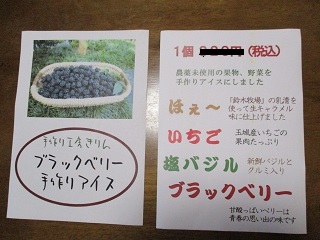 手作り工房きりん
ブラックベリー
手作りアイス
1個 (税込)
農薬未使用の果物、野菜を
手作りアイスにしました
ほぇ～
「鈴木牧場」の乳清を
使って生キャラメル
味に仕上げました
いちご
玉城産いちごの
果肉たっぷり
塩バジル
新鮮バジルと
クルミ入り
ブラックベリー
甘酸っぱいベリーは
青春の思い出の味です